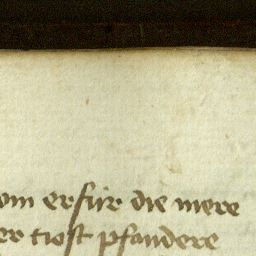 om erfür die mere
er tiost pfandere